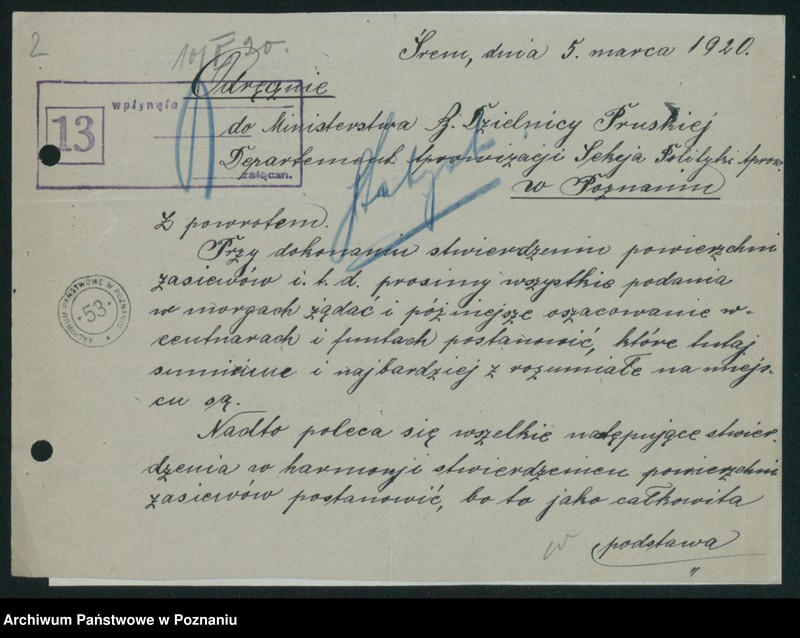 2
10/II 20.
Śrem, dnia 5. marca 1920.
Odręgnie
wpłynęło
13
załączn.
do Ministerstwa B. Dzielnicy Pruskiej
Departement Aprowizacji Sekcja Polityki Aprow.
w Poznaniu
Z powrotem.
Przy dokonaniu stwierdzeniu powierzchni
zasiewów i. t. d. prosimy wszystkie podania
w morgach żądać i późniejsze oszacowanie w-
centnarach i funtach postanowić, które tutaj
sumienne i najbardziej z rozumiałe na miejs-
cu są.
Nadto poleca się wszelkie następujące stwier-
dzenia w harmonji stwierdzeniem powierzchni
zasiewów postanowić, bo to jako całkowita
podstawa
"
ARCHIWUM PAŃSTWOWE W POZNANIU
53
Archiwum Państwowe w Poznaniu